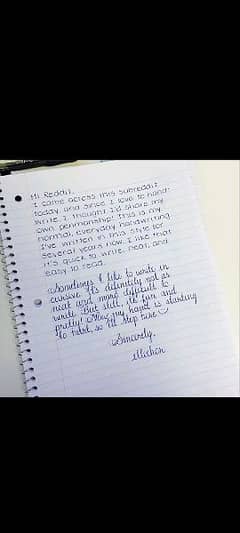 Hi Reddit,
I came across this subreddit
today and since I love to hand-
write, I thought I'd share my
own penmanship! This is my
normal, everyday handwriting
I've written in this style for
several years now. I like that
it's quick to write, neat, and
easy to read.
Sometimes I like to write in
cursive. It's definitely not as
neat and more difficult to
write. But still, it's fun and
pretty! Okay my hand is starting
to hurt, so I'll stop here
Sincerely,